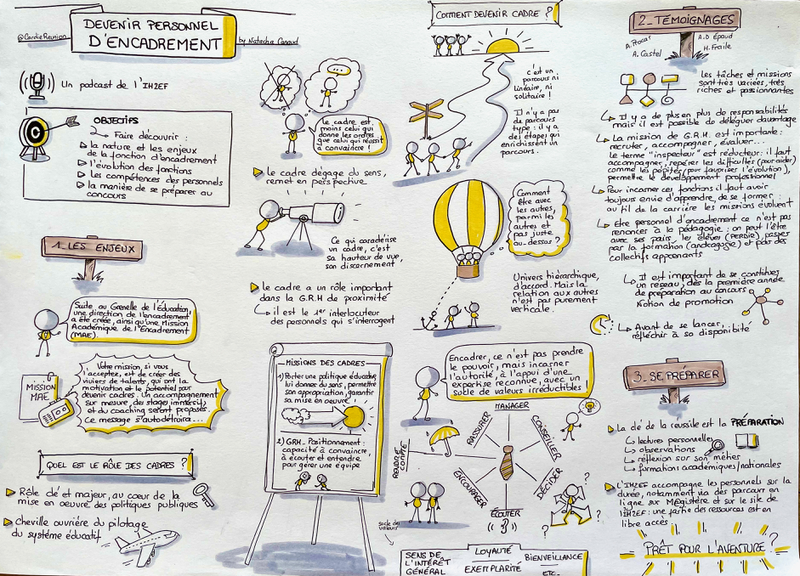 @CardieReunion
DEVENIR PERSONNEL
D'ENCADREMENT
by Natacha
Un podcast de l'IH2EF
OBJECTIFS
Faire découvrir :
la nature et les enjeux
de la fonction d'encadrement
l'évolution des fonctions
Les compétences des personnels
la manière de se préparer au
concours
1_ LES ENJEUX
Suite au Grenelle de l'Éducation,
une direction de l'encadrement
a été créée, ainsi qu'une Mission
Académique de l'Encadrement
(MAE).
MISSION
MAE
Votre mission, si vous
l'acceptez, est de créer des
viviers de talents, qui ont la
motivation et le potentiel pour
devenir cadres. Un accompagnement
sur mesure, des stages immersifs
et du coaching seront proposés.
Ce message s'autodétruira...
QUEL EST LE RÔLE DES CADRES ?
Rôle clé et majeur, au cœur de la
mise en oeuvre des politiques publiques
Cheville ouvrière du pilotage
du système éducatif
le cadre est
moins celui qui
donne les ordres
que celui qui réussit
à convaincre !
le cadre dégage du sens,
remet en perspective
Ce qui caractérise
un cadre, c'est
sa hauteur de vue,
son discernement
le cadre a un rôle important
dans la G.R.H de proximité
il est le 1er interlocuteur
des personnels qui s'interrogent
MISSIONS DES CADRES
1) Porter une politique éducative,
lui donner du sens, permettre
son appropriation, garantir
sa mise en oeuvre !
2) GRH - Positionnement :
capacité à convaincre,
à écouter et entendre
pour gérer une équipe
COMMENT DEVENIR CADRE ?
c'est un
parcours ni
linéaire, ni
solitaire !
Il n'y a
pas de
parcours
type : il y a
des étapes qui
enrichissent un
parcours.
Comment
être avec
les autres,
parmi les
autres et
pas juste
au-dessus ?
Univers hiérarchique,
d'accord. Mais la
relation aux autres
n'est pas purement
verticale.
Encadrer, ce n'est pas prendre
le pouvoir, mais incarner
l'autorité, à l'appui d'une
expertise reconnue, avec un
socle de valeurs irréductibles
MANAGER
RASSURER
CONSEILLER
RENDRE
COMPTE
DÉCIDER
ENCOURAGER
ÉCOUTER
Socle des
valeurs
SENS DE
L'INTÉRÊT
GÉNÉRAL
LOYAUTÉ
EXEMPLARITÉ
BIENVEILLANCE
ETC.
2_ TÉMOIGNAGES
A.D Épaud
A. Castel
H. Fraile
les tâches et missions
sont très variées, très
riches et passionnantes
Il y a de plus en plus de responsabilités
mais il est possible de déléguer davantage
La mission de G.R.H est importante :
recruter, accompagner, évaluer...
Le terme "inspecteur" est réducteur : il faut
accompagner, repérer les difficultés (pour aider)
comme les pépites (pour favoriser l'évolution),
permettre le développement professionnel
Pour incarner ces fonctions il faut avoir
toujours envie d'apprendre, de se former
au fil de la carrière les missions évoluent
Être personnel d'encadrement ce n'est pas
renoncer à la pédagogie : on peut l'être
avec ses pairs, les élèves (PERDIR), passer
par la formation (andragogie) et par des
collectifs apprenants
Il est important de se constituer
un réseau, dès la première année
de préparation au concours
Notion de promotion
Avant de se lancer,
réfléchir à sa disponibilité
3_ SE PRÉPARER
La clé de la réussite est la PRÉPARATION
lectures personnelles
observations
réflexion sur son métier
formations académiques/nationales
L'IH2EF accompagne les personnels sur la
durée, notamment via des parcours en
ligne sur M@gistère et sur le site de
l'IH2EF : une partie des ressources est en
libre accès.
PRÊT POUR L'AVENTURE ?